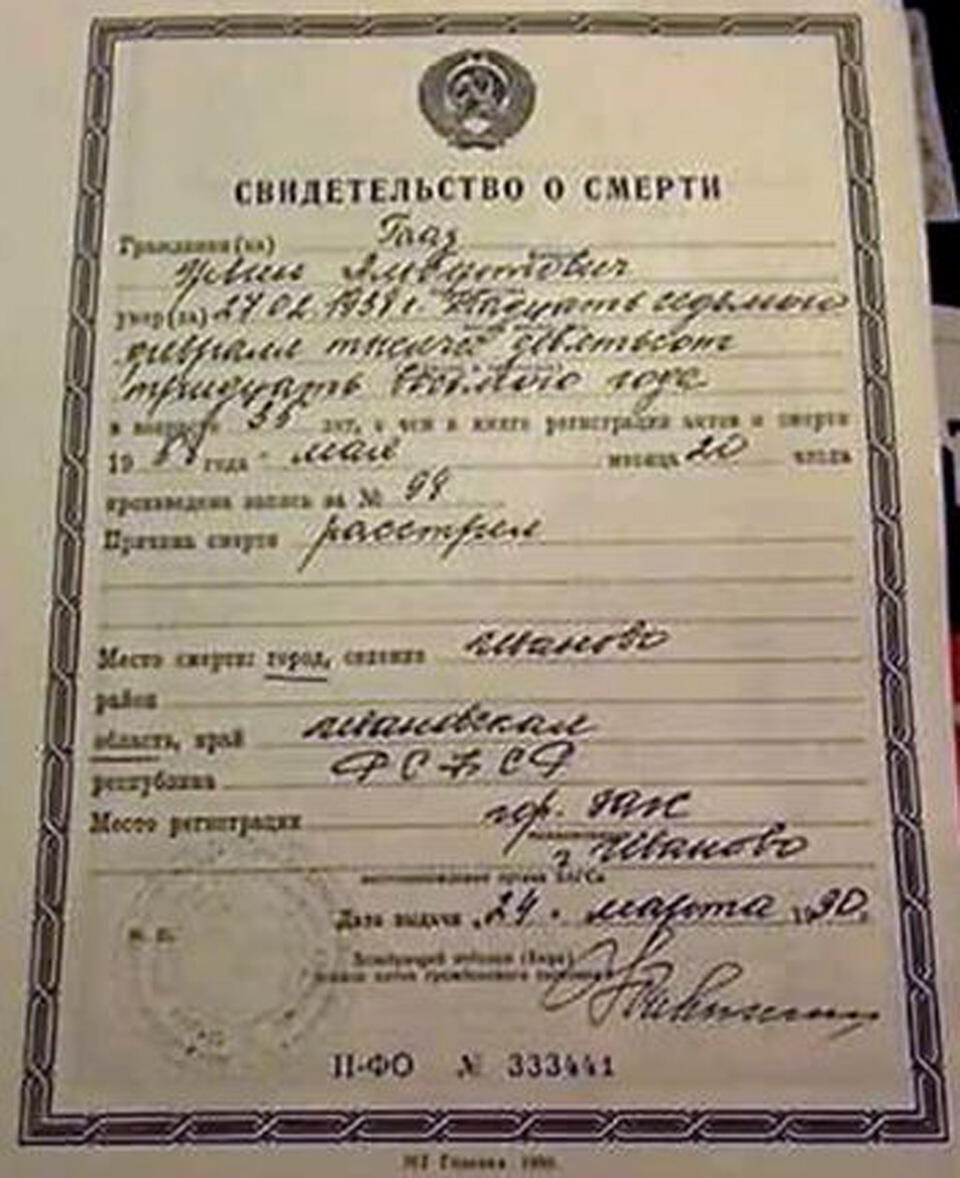 СВИДЕТЕЛЬСТВО О СМЕРТИ
Гражданин(ка) Гааз
Альбертович
умер(ла) 27.02.1938 г. Двадцать седьмого
февраля тысяча девятьсот
тридцать восьмого года
в возрасте 35 лет, о чем в книге регистрации актов о смерти
19 года мая месяца 20 числа
произведена запись за № 99
Причина смерти расстрел
Место смерти: город, селение Иваново
район
область, край Ивановская
республика РСФСР
Место регистрации гор. ЗАГС
г. Иваново
местонахождение органа ЗАГСа
Дата выдачи „24 " марта 1990 г.
М. П.
Заведующий отделом (бюро)
записи актов гражданского состояния
II-ФО № 333441